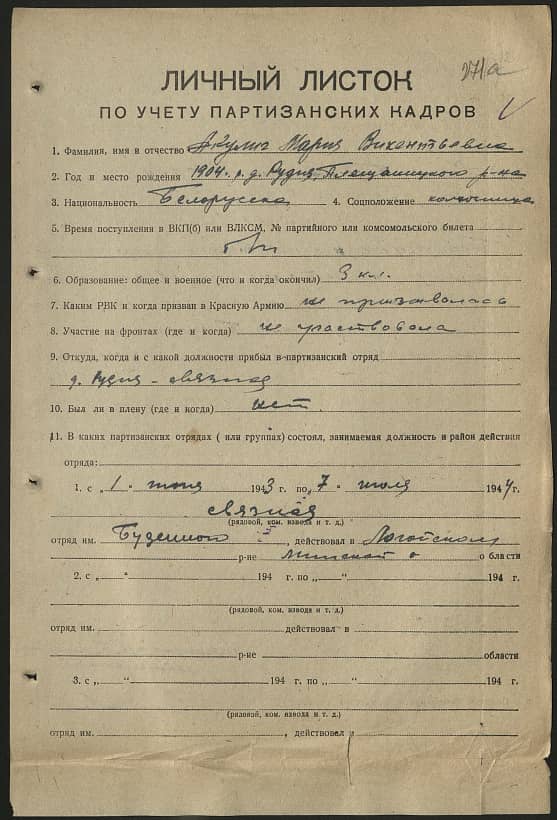 271а
ЛИЧНЫЙ ЛИСТОК
ПО УЧЕТУ ПАРТИЗАНСКИХ КАДРОВ
1. Фамилия, имя и отчество Акулич Мария Викентьевна
2. Год и место рождения 1904 г. р. д. Рудня, Плещаницкого р-на
3. Национальность Белорусска 4. Соцположение колхозница
5. Время поступления в ВКП(б) или ВЛКСМ, № партийного или комсомольского билета
б/п
6. Образование: общее и военное (что и когда окончил) 3 кл.
7. Каким РВК и когда призван в Красную Армию не призывалась
8. Участие на фронтах (где и когда) не участвовала
9. Откуда, когда и с какой должности прибыл в партизанский отряд
д. Рудня - связная
10. Был ли в плену (где и когда) нет.
11. В каких партизанских отрядах ( или группах) состоял, занимаемая должность и район действия
отряда:
1. с „1" июня 1943 г. по „7" июля 1944 г.
связная
(рядовой, ком. взвода и т. д.)
отряд им. Буденного, действовал в Логойском
р-не Минской о области
2. с „ " 194 г. по „ " 194 г.
(рядовой, ком. взвода и т. д.)
отряд им. действовал в
р-не области
3. с „ " 194 г. по „ " 194 г.
(рядовой, ком. взвода и т. д.)
отряд им. , действовал в